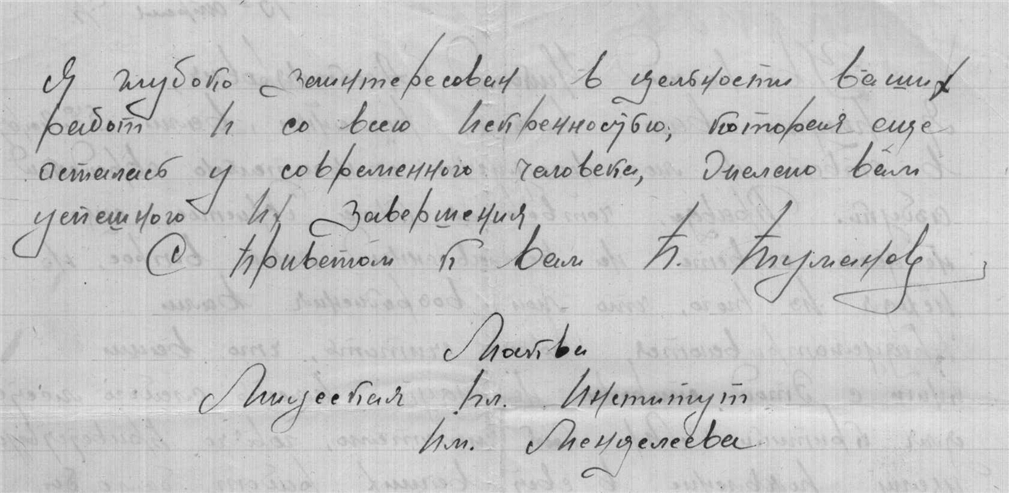 Я глубоко заинтересован в цельности ваших
работ и со всею искренностью, которая еще
осталась у современного человека, желаю вам
успешного их завершения
С приветом к вам П.
Москва
Миусская пл. Институт
им. Менделеева